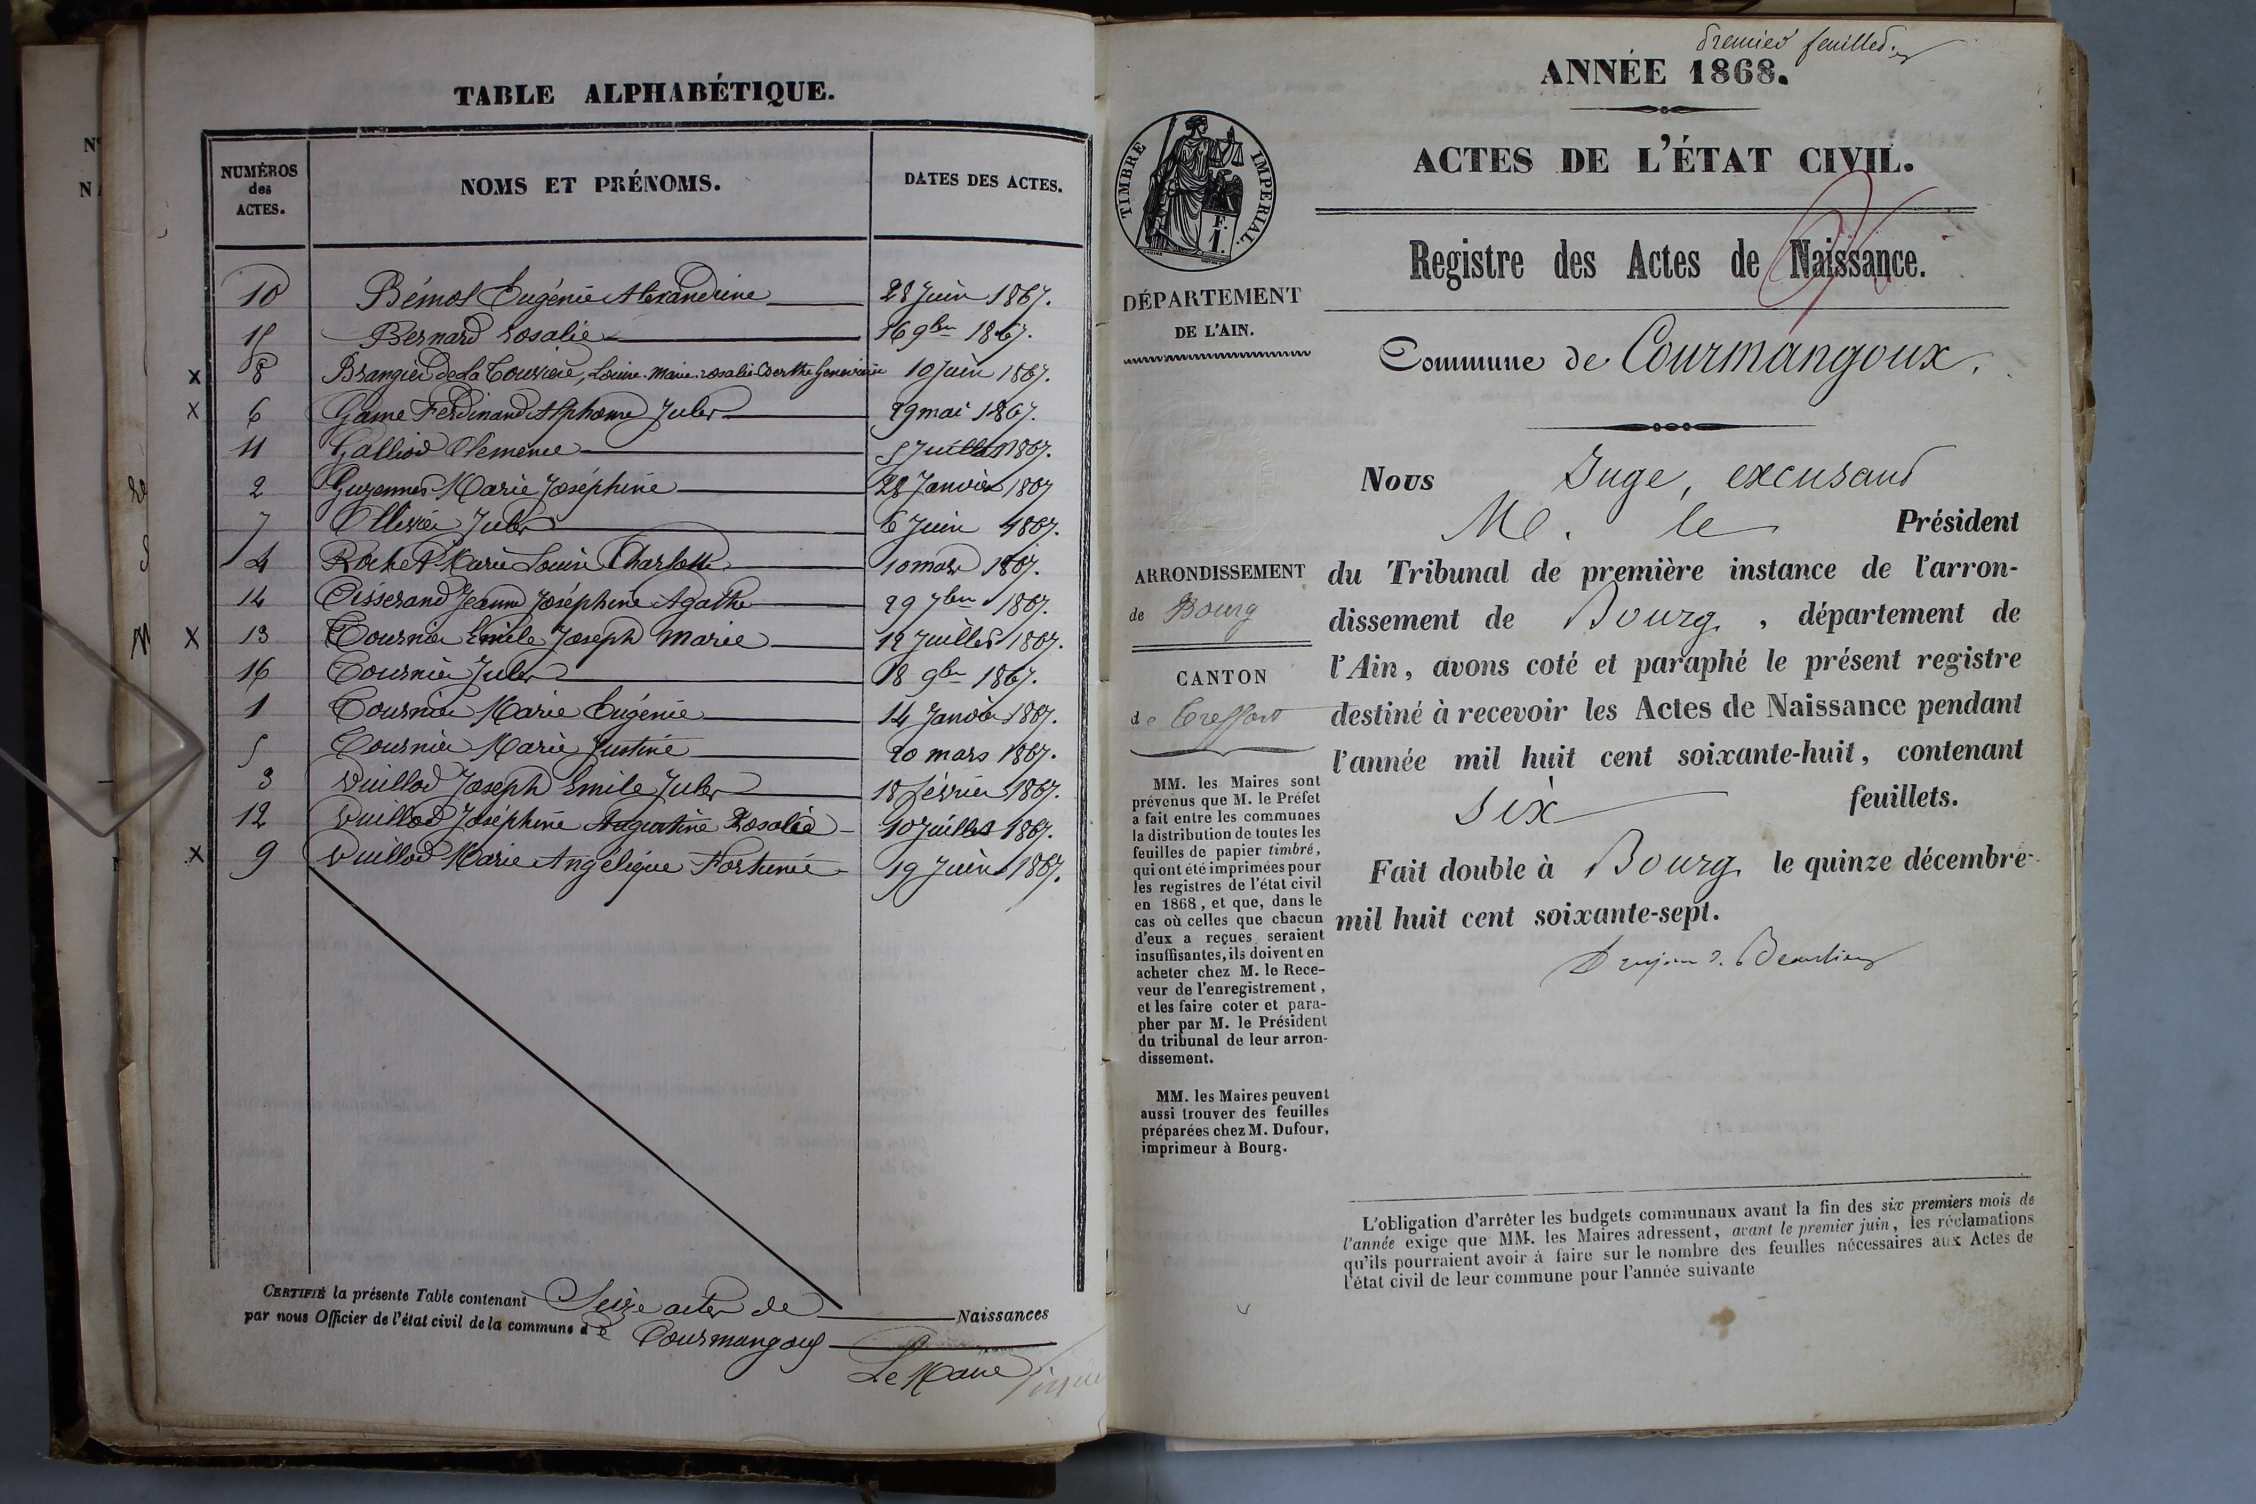 TABLE ALPHABÉTIQUE.
NUMÉROS des ACTES. NOMS ET PRÉNOMS. DATES DES ACTES.
10 Bémol Eugénie Alexandrine 28 Juin 1867.
15 Bernard Rosalie 16 9bre 1867.
x 8 Brangier de la Tourière, Louise Marie Rosalie Berthe Geneviève 10 Juin 1867.
x 6 Game Ferdinand Alphonse Jules 29 mai 1867.
11 Galliod Clémence 5 Juillet 1867.
2 Guzennes Marie Joséphine 28 Janvier 1867
7 Ollivier Jules 6 Juin 1867.
4 Rochet Marie Louise Charlotte 10 mars 1867.
14 Tisserand Jeanne Joséphine Agathe 29 7bre 1867.
x 13 Tournier Emile Joseph Marie 12 Juillet 1867.
16 Tournier Jules 18 9bre 1867.
1 Tournier Marie Eugénie 14 Janvier 1867.
5 Tournier Marie Justine 20 mars 1867.
3 Vuillod Joseph Emile Jules 18 février 1867.
12 Vuillod Joséphine Augustine Rosalie 10 Juillet 1867.
x 9 Vuillod Marie Angélique Fortunée 19 Juin 1867.
CERTIFIÉ la présente Table contenant Seize actes de Naissances
par nous Officier de l'état civil de la commune de Courmangoux
Le Maire
premier feuillet.
ANNÉE 1868.
ACTES DE L'ÉTAT CIVIL.
TIMBRE IMPERIAL.
Registre des Actes de Naissance.
DÉPARTEMENT
DE L'AIN.
Commune de Courmangoux.
Nous Juge, excusant
M. le Président
du Tribunal de première instance de l'arron-
dissement de Bourg, département de
l'Ain, avons coté et paraphé le présent registre
destiné à recevoir les Actes de Naissance pendant
l'année mil huit cent soixante-huit, contenant
six feuillets.
Fait double à Bourg, le quinze décembre
mil huit cent soixante-sept.
ARRONDISSEMENT
de Bourg
CANTON
de Treffort
MM. les Maires sont
prévenus que M. le Préfet
a fait entre les communes
la distribution de toutes les
feuilles de papier timbré,
qui ont été imprimées pour
les registres de l'état civil
en 1868, et que, dans le
cas où celles que chacun
d'eux a reçues seraient
insuffisantes, ils doivent en
acheter chez M. le Rece-
veur de l'enregistrement,
et les faire coter et para-
pher par M. le Président
du tribunal de leur arron-
dissement.
MM. les Maires peuvent
aussi trouver des feuilles
préparées chez M. Dufour,
imprimeur à Bourg.
L'obligation d'arrêter les budgets communaux avant la fin des six premiers mois de
l'année exige que MM. les Maires adressent, avant le premier juin, les réclamations
qu'ils pourraient avoir à faire sur le nombre des feuilles nécessaires aux Actes de
l'état civil de leur commune pour l'année suivante